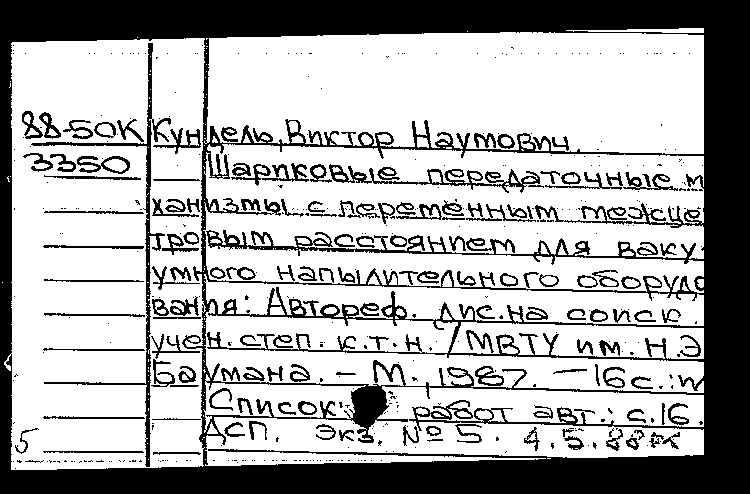 88-50К Кундель, Виктор Наумович.
3350 Шариковые передаточные м
ханизмы с переменным межце
тровым расстоянием для ваку
умного напылительного оборудо
вания: Автореф. дис. на соиск.
учен. степ. к.т.н. / МВТУ им. Н.Э
Баумана. – М., 1987. – 16 с.: и
Список работ авт.: с.16.
5 ДСП. Экз. № 5. 4.5.88